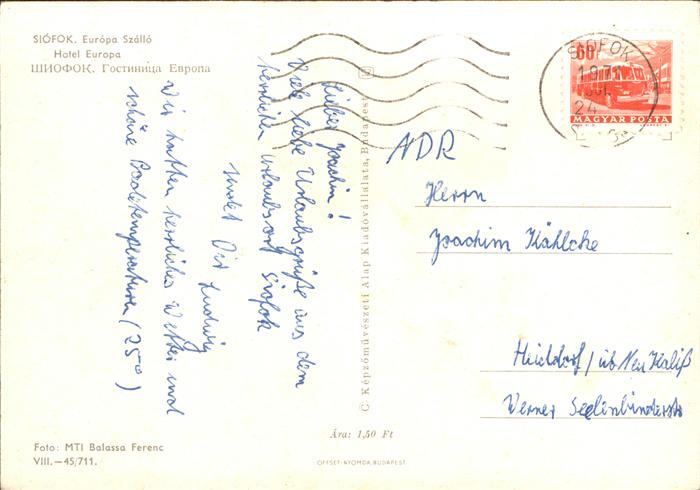 SIÓFOK. Európa Szálló
Hotel Europa
ШИОФОК. Гостиница Европа
Lieber Joachim!
Viele liebe Urlaubsgrüße aus dem
herrlichen Urlaubsort Siofok
sendet Dir Ludwig
Wir hatten herrliches Wetter und
schöne Badetemperaturen (25°)
Foto: MTI Balassa Ferenc
VIII.—45/711.
C Képzőművészeti Alap Kiadóvállalata, Budapest
Ára: 1,50 Ft
OFFSET-NYOMDA, BUDAPEST
60
MAGYAR POSTA
SIÓFOK
197
JUL.
24
NDR
Herrn
Joachim Kählcke
Heiddorf / üb Neu Kaliß
Werner Seelenbinderstr